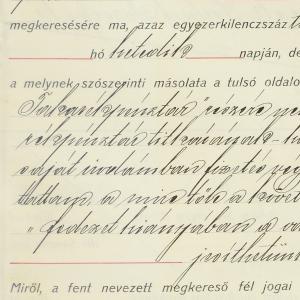 megkeresésére ma, azaz egyezerkilenczszáz
hó hetedik napján, de
a melynek szószerinti másolata a tulsó oldalo
Takarékpénztár részére
rékpénztár titkárának
saját irodámban fizetés vég
tattam, a mire tőle a követ
„fedezet hiányában a
Miről, a fent nevezett megkereső fél jogai